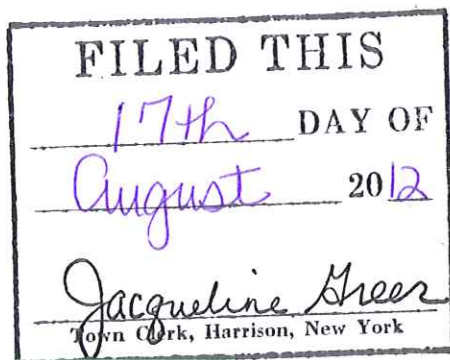 FILED THIS
17th DAY OF
August 2012
Jacqueline Greer
Town Clerk, Harrison, New York